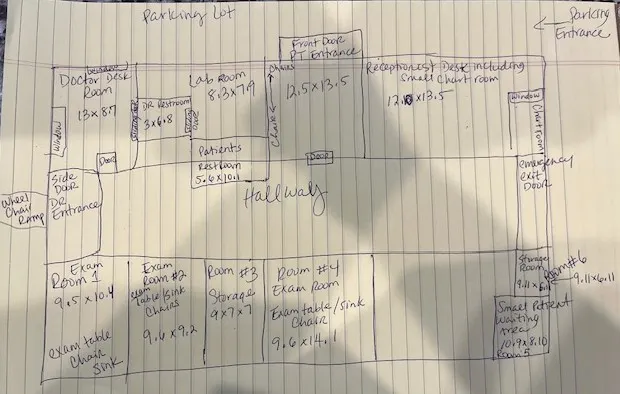 Parking Lot
Parking
Entrance
Front Door
PT Entrance
window
Doctor Desk
Room
13 x 8.7
Window
Lab Room
8.3 x 7.9
DR Restroom
3x6.8
Patients
Restroom
5.6 x 10.1
Chairs
Chairs
12.5 x 13.5
Receptionest Desk including
Small Chart room
13.5
Window
Chart room
Door
Door
Side
Door
DR
Entrance
Wheel
Chair
Ramp
Hallway
emergency
exit
Door
Exam
Room 1
9.5 x 10.4
exam table
Chair
Sink
Exam
Room #2
exam
table/sink
Chairs
9.6 x 9.2
Room #3
Storage
9x7x7
Room #4
Exam Room
Exam table/sink
Chair
9.6 x 14.1
Storage
Room
9.11 x
Room #6
9.11 x 6.11
Small Patient
Waiting
Area
10.9 x 8.10
Room 5